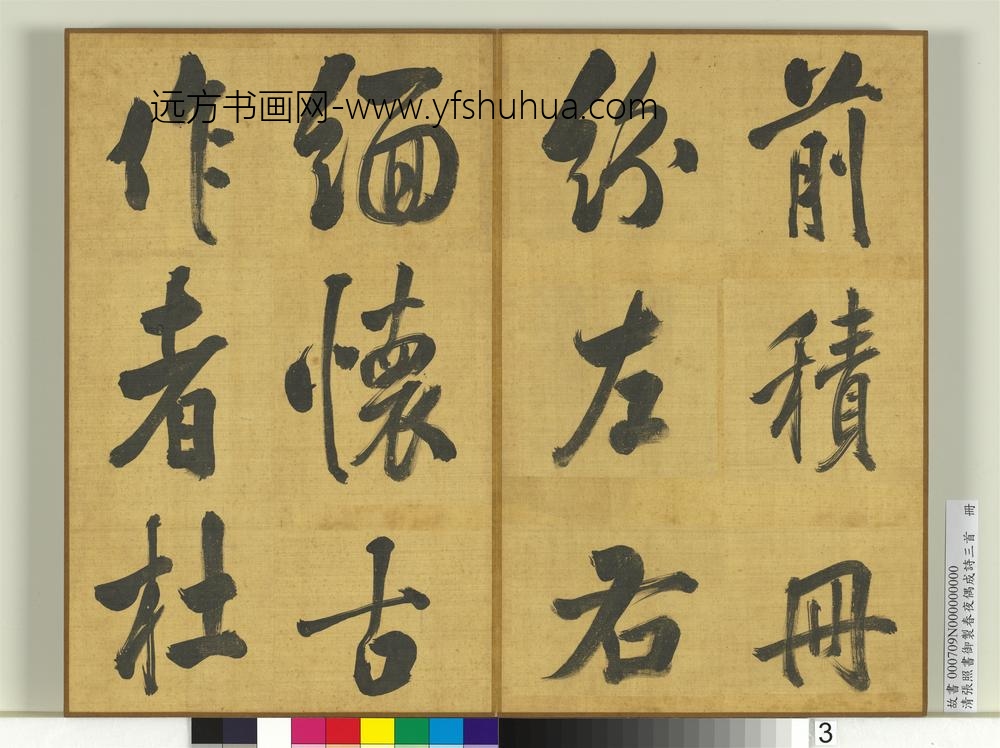 前積冊
紛左右
緬懷古
作者杜
远方书画网-www.yfshuhua.com
故書 000709N000000000
清張照書御製春夜偶成詩三首 冊
3